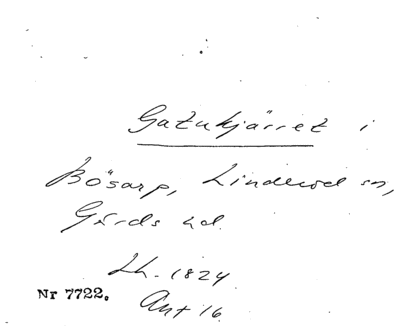 Gatukjärret i
Bösarp, Linderöd sn,
Gärds hd.
Lh. 1824
Nr 7722.
Ant 16